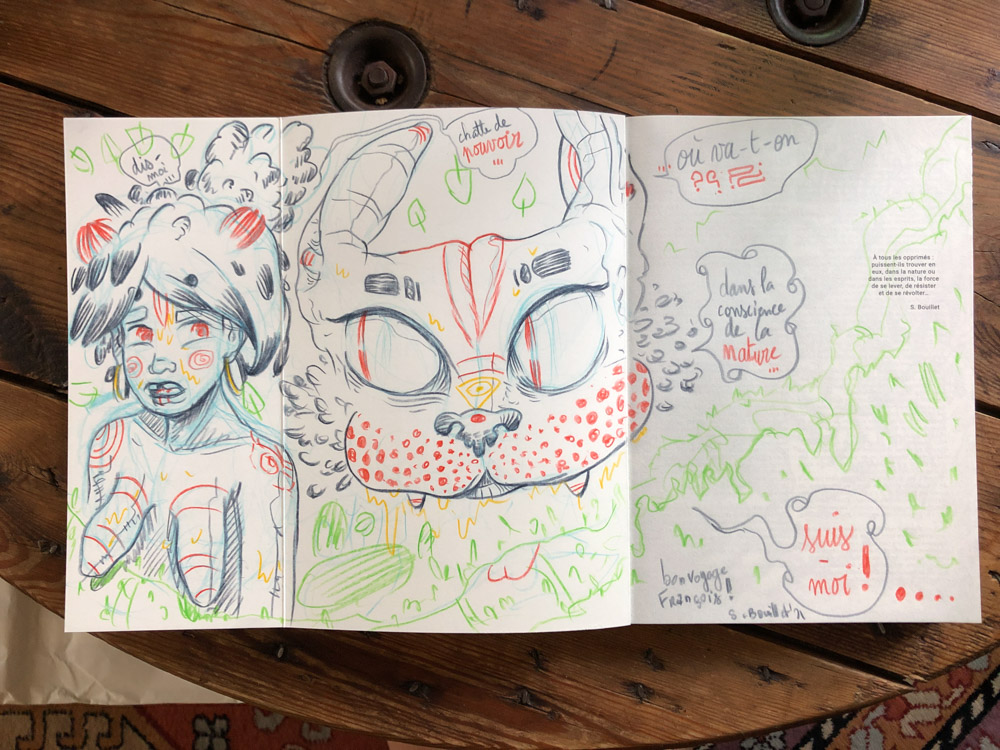 dis
moi
...
chatte de
pouvoir
...
... où va-t-on
??
À tous les opprimés :
puissent-ils trouver en
eux, dans la nature ou
dans les esprits, la force
de se lever, de résister
et de se révolter...
S. Bouillet
dans la
conscience
de la
nature
...
suis
-
moi !
....
bon voyage
François !
S. Bouillet